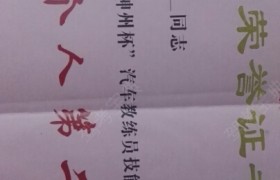 荣誉证
同志
神州杯”汽车教练员技能
个人第